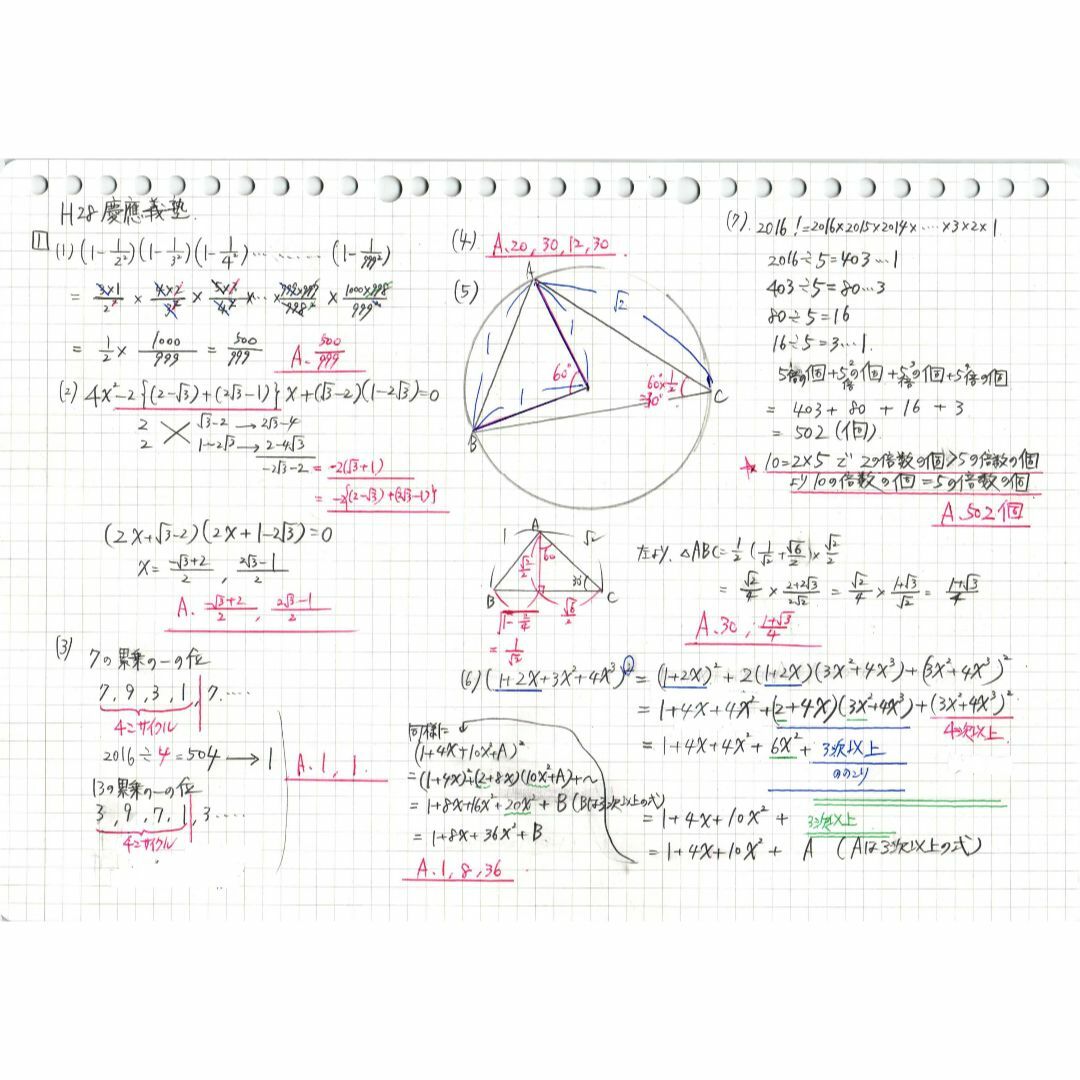 H28 慶應義塾.
1
(1) (1-1/2²)(1-1/3²)(1-1/4²)………(1-1/999²)
= 3×1/2² × 4×2/3² × 5×3/4² ×…× 999×997/998² × 1000×998/999²
= 1/2 × 1000/999 = 500/999 A. 500/999
(2) 4x²-2{(2-√3)+(2√3-1)}x+(√3-2)(1-2√3)=0
2 √3-2 → 2√3-4
2 1-2√3 → 2-4√3
-2√3-2 = -2(√3+1)
= -2{(2-√3)+(2√3-1)}
(2x+√3-2)(2x+1-2√3)=0
x= -√3+2/2 , 2√3-1/2
A. -√3+2/2 , 2√3-1/2
(3) 7の累乗の一の位
7, 9, 3, 1, 7.…
4コサイクル
2016÷4=504 → 1
13の累乗の一の位
3, 9, 7, 1, 3…
4コサイクル
A. 1, 1.
(4). A. 20, 30, 12, 30
(5)
A
√2
1
1
1
60°
60°×1/2
=30°
B
C
A
1
√2
√2/2
60
30°
B
C
√1-2/4
√6/2
= 1/√2
左より, △ABC = 1/2 (1/√2+√6/2)×√2/2
= √2/4 × 2+2√3/2√2 = √2/4 × 1+√3/√2 = 1+√3/4
A. 30, 1+√3/4
(6) (1+2x+3x²+4x³)² = (1+2x)²+2(1+2x)(3x²+4x³)+(3x²+4x³)²
= 1+4x+4x²+(2+4x)(3x²+4x³)+(3x²+4x³)²
4次以上
= 1+4x+4x²+6x²+3次以上
ののこり
= 1+4x+10x² + 3次以上
= 1+4x+10x² + A (Aは3次以上の式)
同様に
(1+4x+10x²+A)²
= (1+4x)²+(2+8x)(10x²+A)+〜
= 1+8x+16x²+20x²+B (Bは3次以上の式)
= 1+8x+36x²+B
A. 1, 8, 36
(7). 2016!=2016×2015×2014×…×3×2×1
2016÷5=403…1
403÷5=80…3
80÷5=16
16÷5=3…1.
5の倍数の個+5²の倍の個+5³の倍の個+5⁴の倍の個
= 403+80+16+3
= 502 (個)
10=2×5で 2の倍数の個>5の倍数の個
より10の倍数の個=5の倍数の個
A. 502個